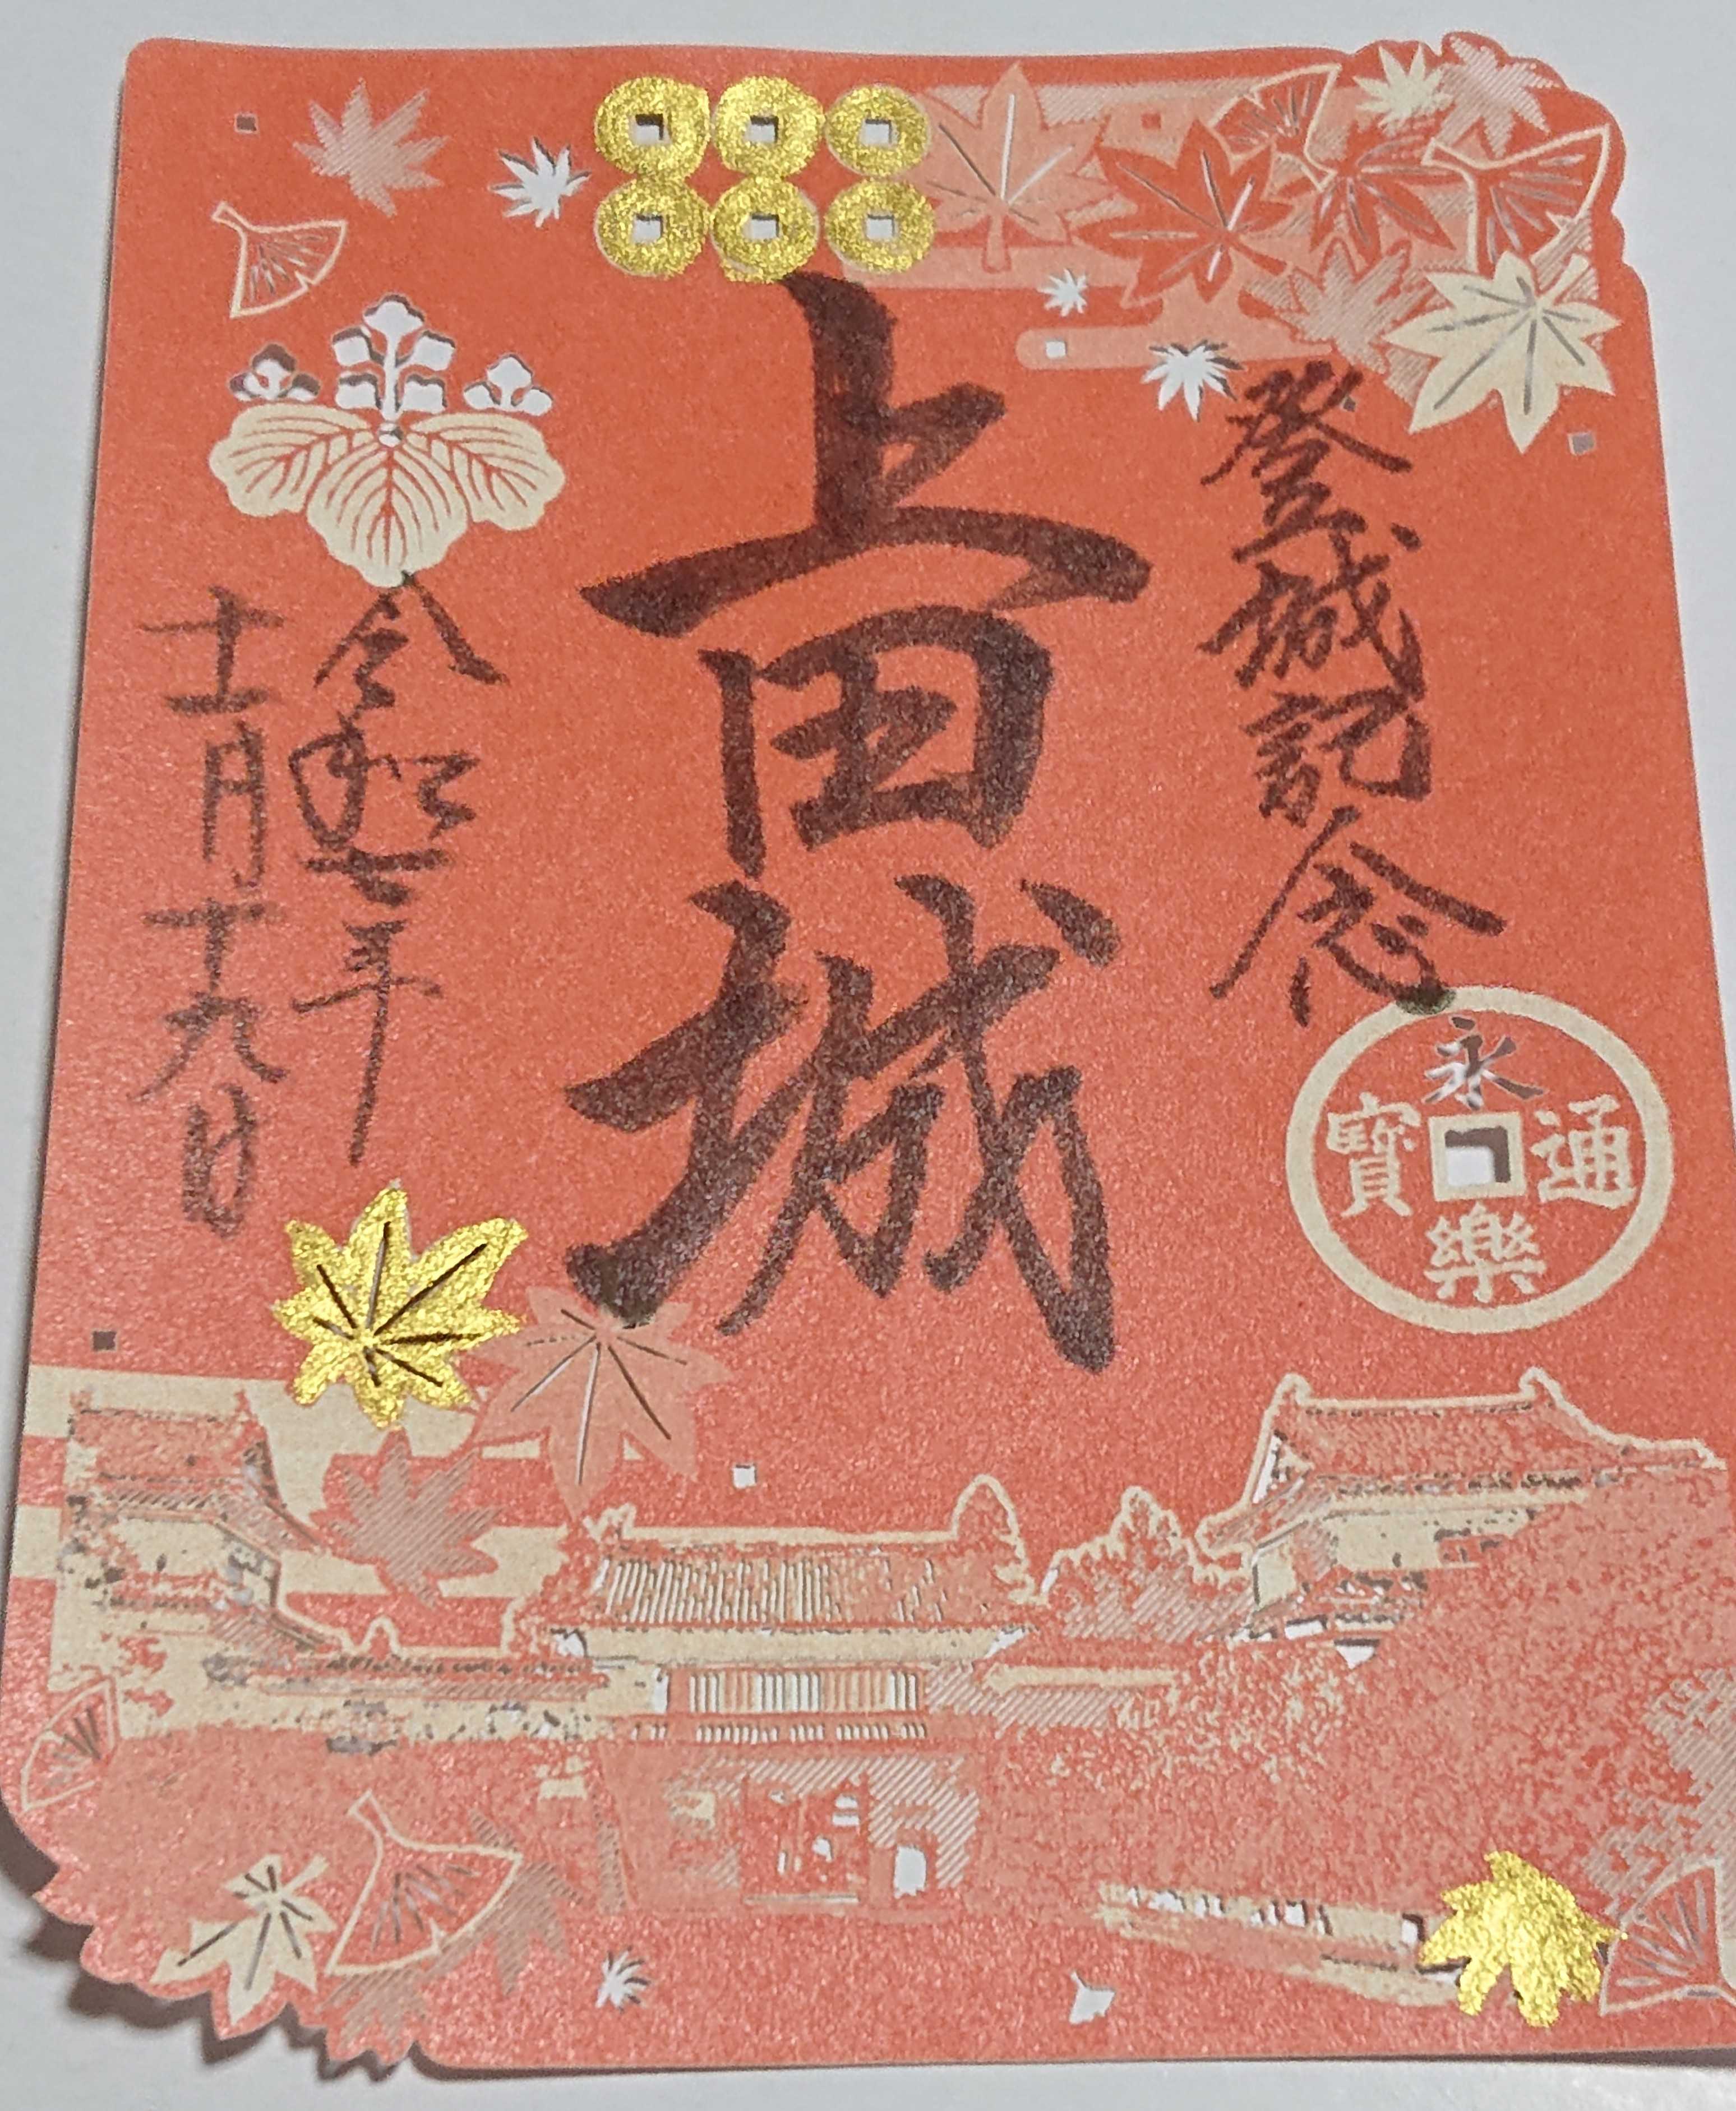 登城記念
上田城
令和七年
十一月十九日
永樂通寳